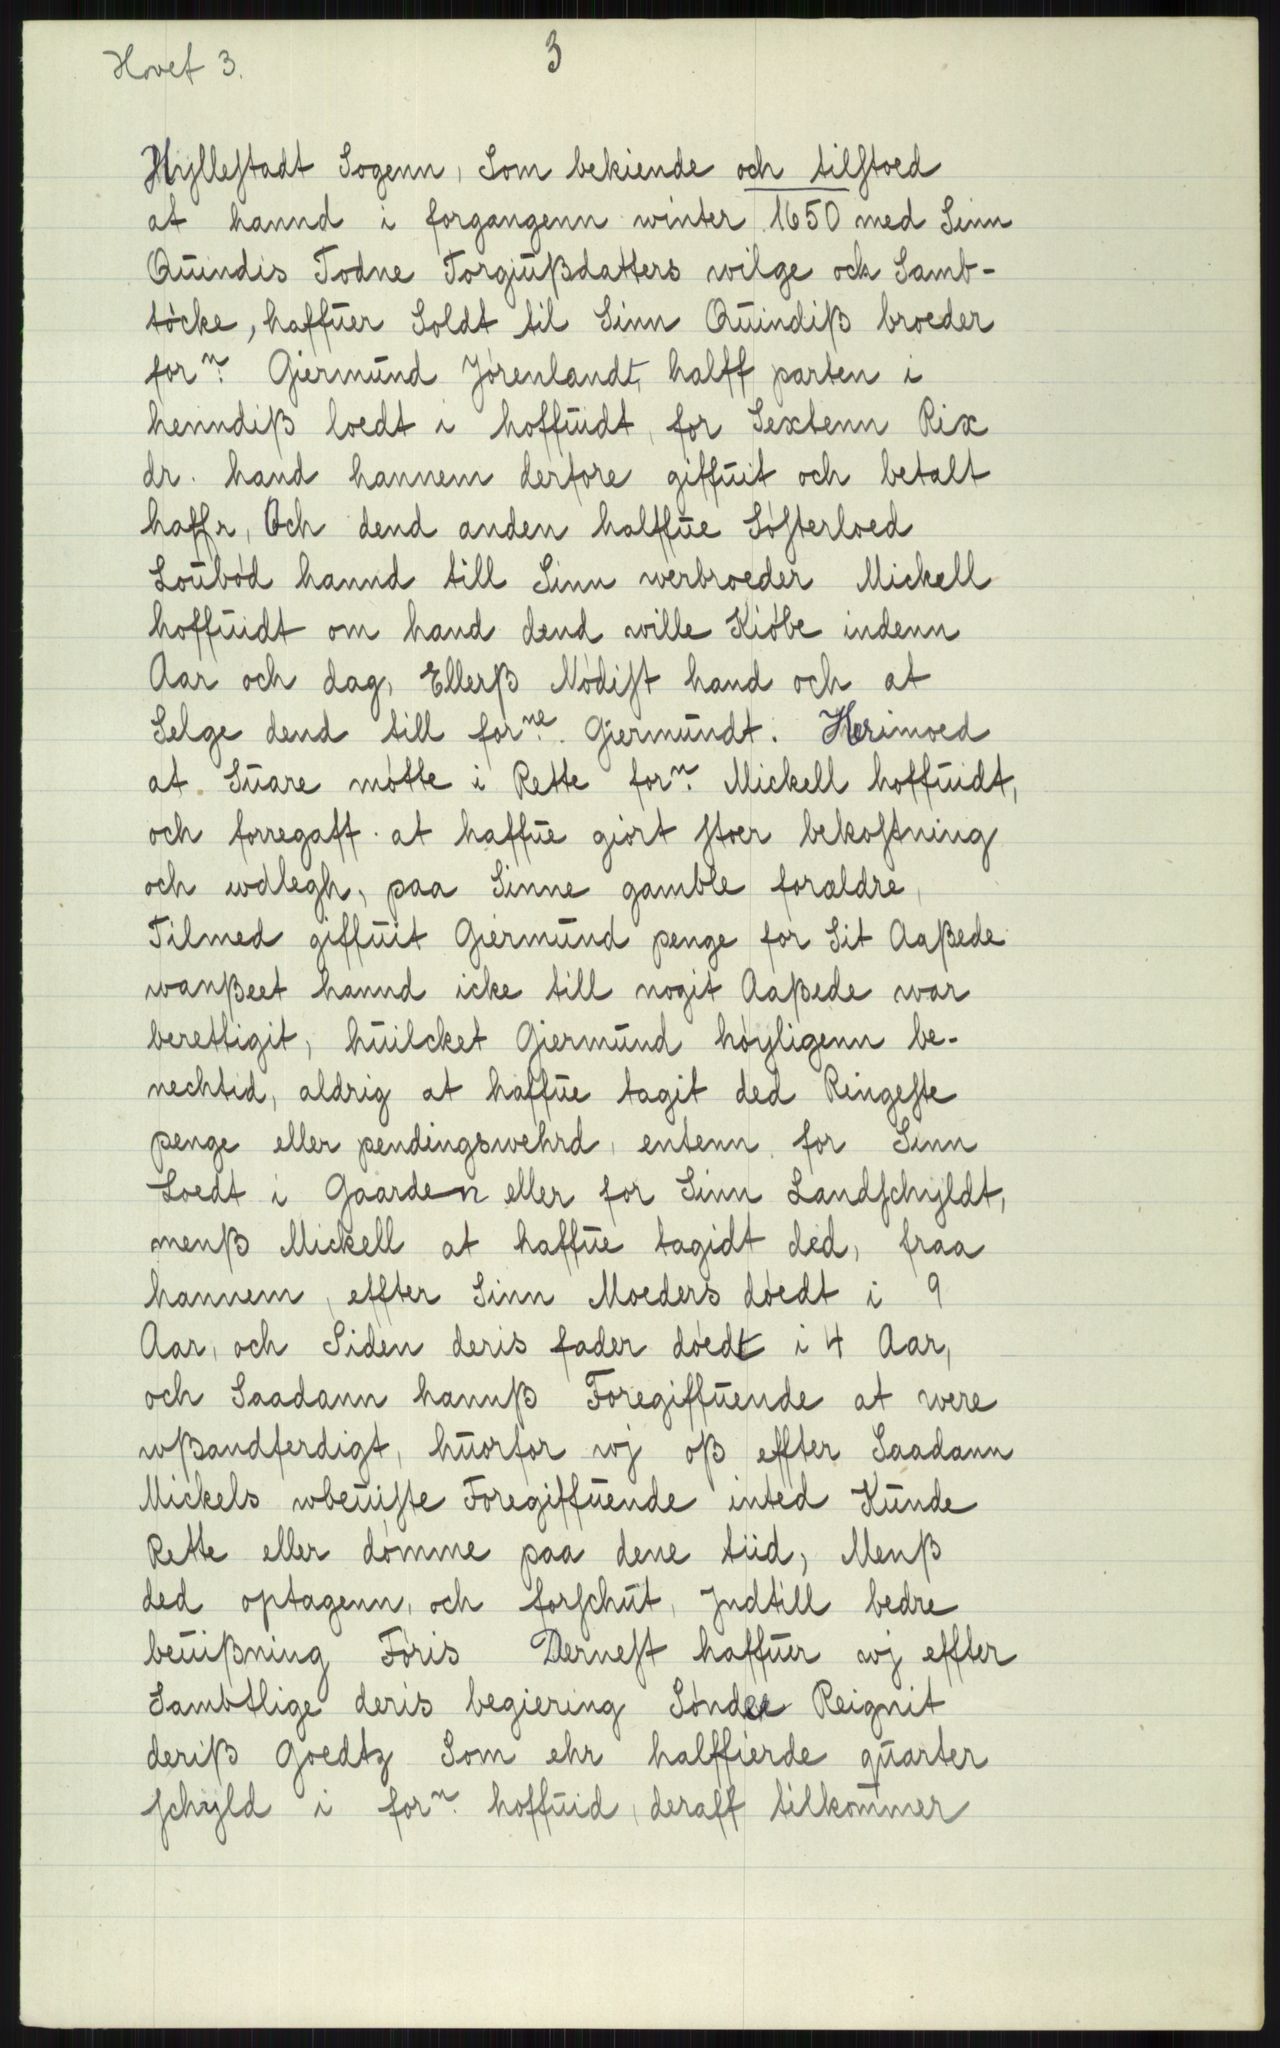 Hovet 3.
3
Hyllestadt Sogenn, Som bekiende och tilstoed
at hannd i forgangenn winter 1650 med Sinn
Quindis Todne Torgiußdatters wilge och Samb-
tÿcke, haffuer Soldt til Sinn Quindiß broeder
forn. Giermund Jørenlandt, halff parten i
henndiß loedt i hoffuidt, for Sextenn Rix
dr. hand hannem derfore giffuit och betalt
haffr, Och dend anden halffue Søsterloed
Loubød hannd till Sinn werbroeder Mickell
hoffuidt om hand dend wille Kiøbe indenn
Aar och dag, Ellerß Nødist hand och at
Selge dend till forne. Giermundt. Herimoed
at Suare møtte i Rette forn. Mickell hoffuidt,
och forregaff at haffue giort stoer bekostning
och wdlegh, paa Sinne gamble forældre,
Tilmed giffuit Giermund penge for Sit Aaßede
wanßeet hannd icke till nogit Aaßede war
berettigit, huilcket Giermund høyligenn be-
nechtid, aldrig at haffue tagit ded Ringeste
penge eller pendingswehrd, entenn for Sinn
Loedt i Gaarden eller for Sinn Landschyldt,
menß Mickell at haffue tagidt ded, fraa
hannem, effter Sinn Moeders døedt i 9
Aar, och Siden deris fader døedt i 4 Aar,
och Saadann hannß Foregiffuende at were
wßandferdigt, huorfor wj oß effter Saadann
Mickels wbeuiste Foregiffuende inted Kunde
Rette eller dømme paa dene tiid, Menß
ded optagenn, och forschut, Indtill bedre
beuißning Føris Dernest haffuer wj effter
Sambtlige deris begiering Sønder Reignit
deriß Goedtz Som ehr halffierde quarter
schyld i forn. hoffuid, deraff tilkommer